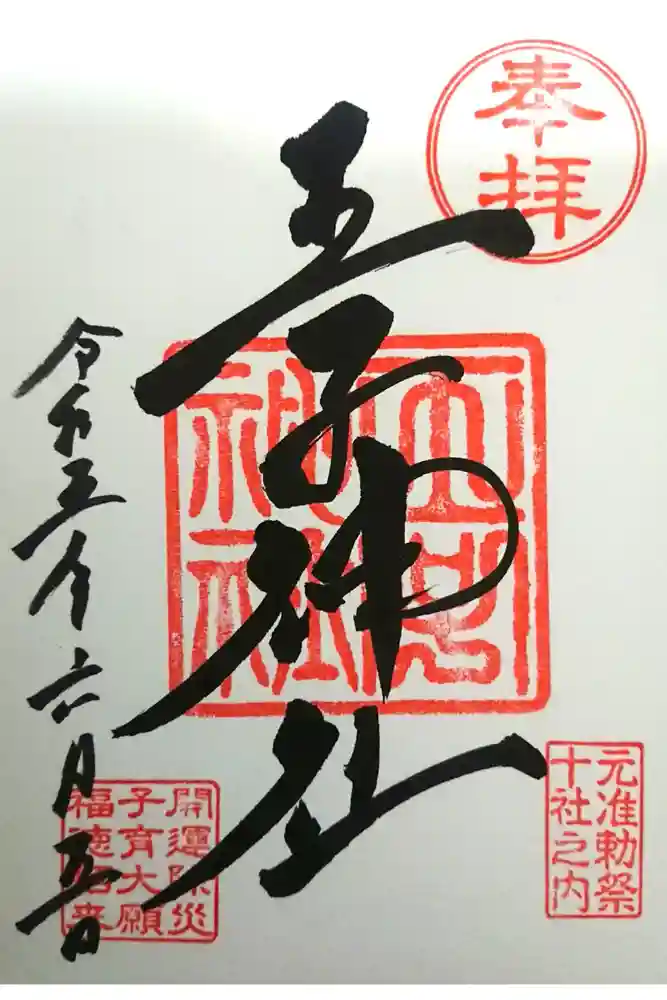 奉拝
王子神社
王子
神社
元准勅祭
十社之内
開運除災
子育大願
福徳招来
令和五年六月五日